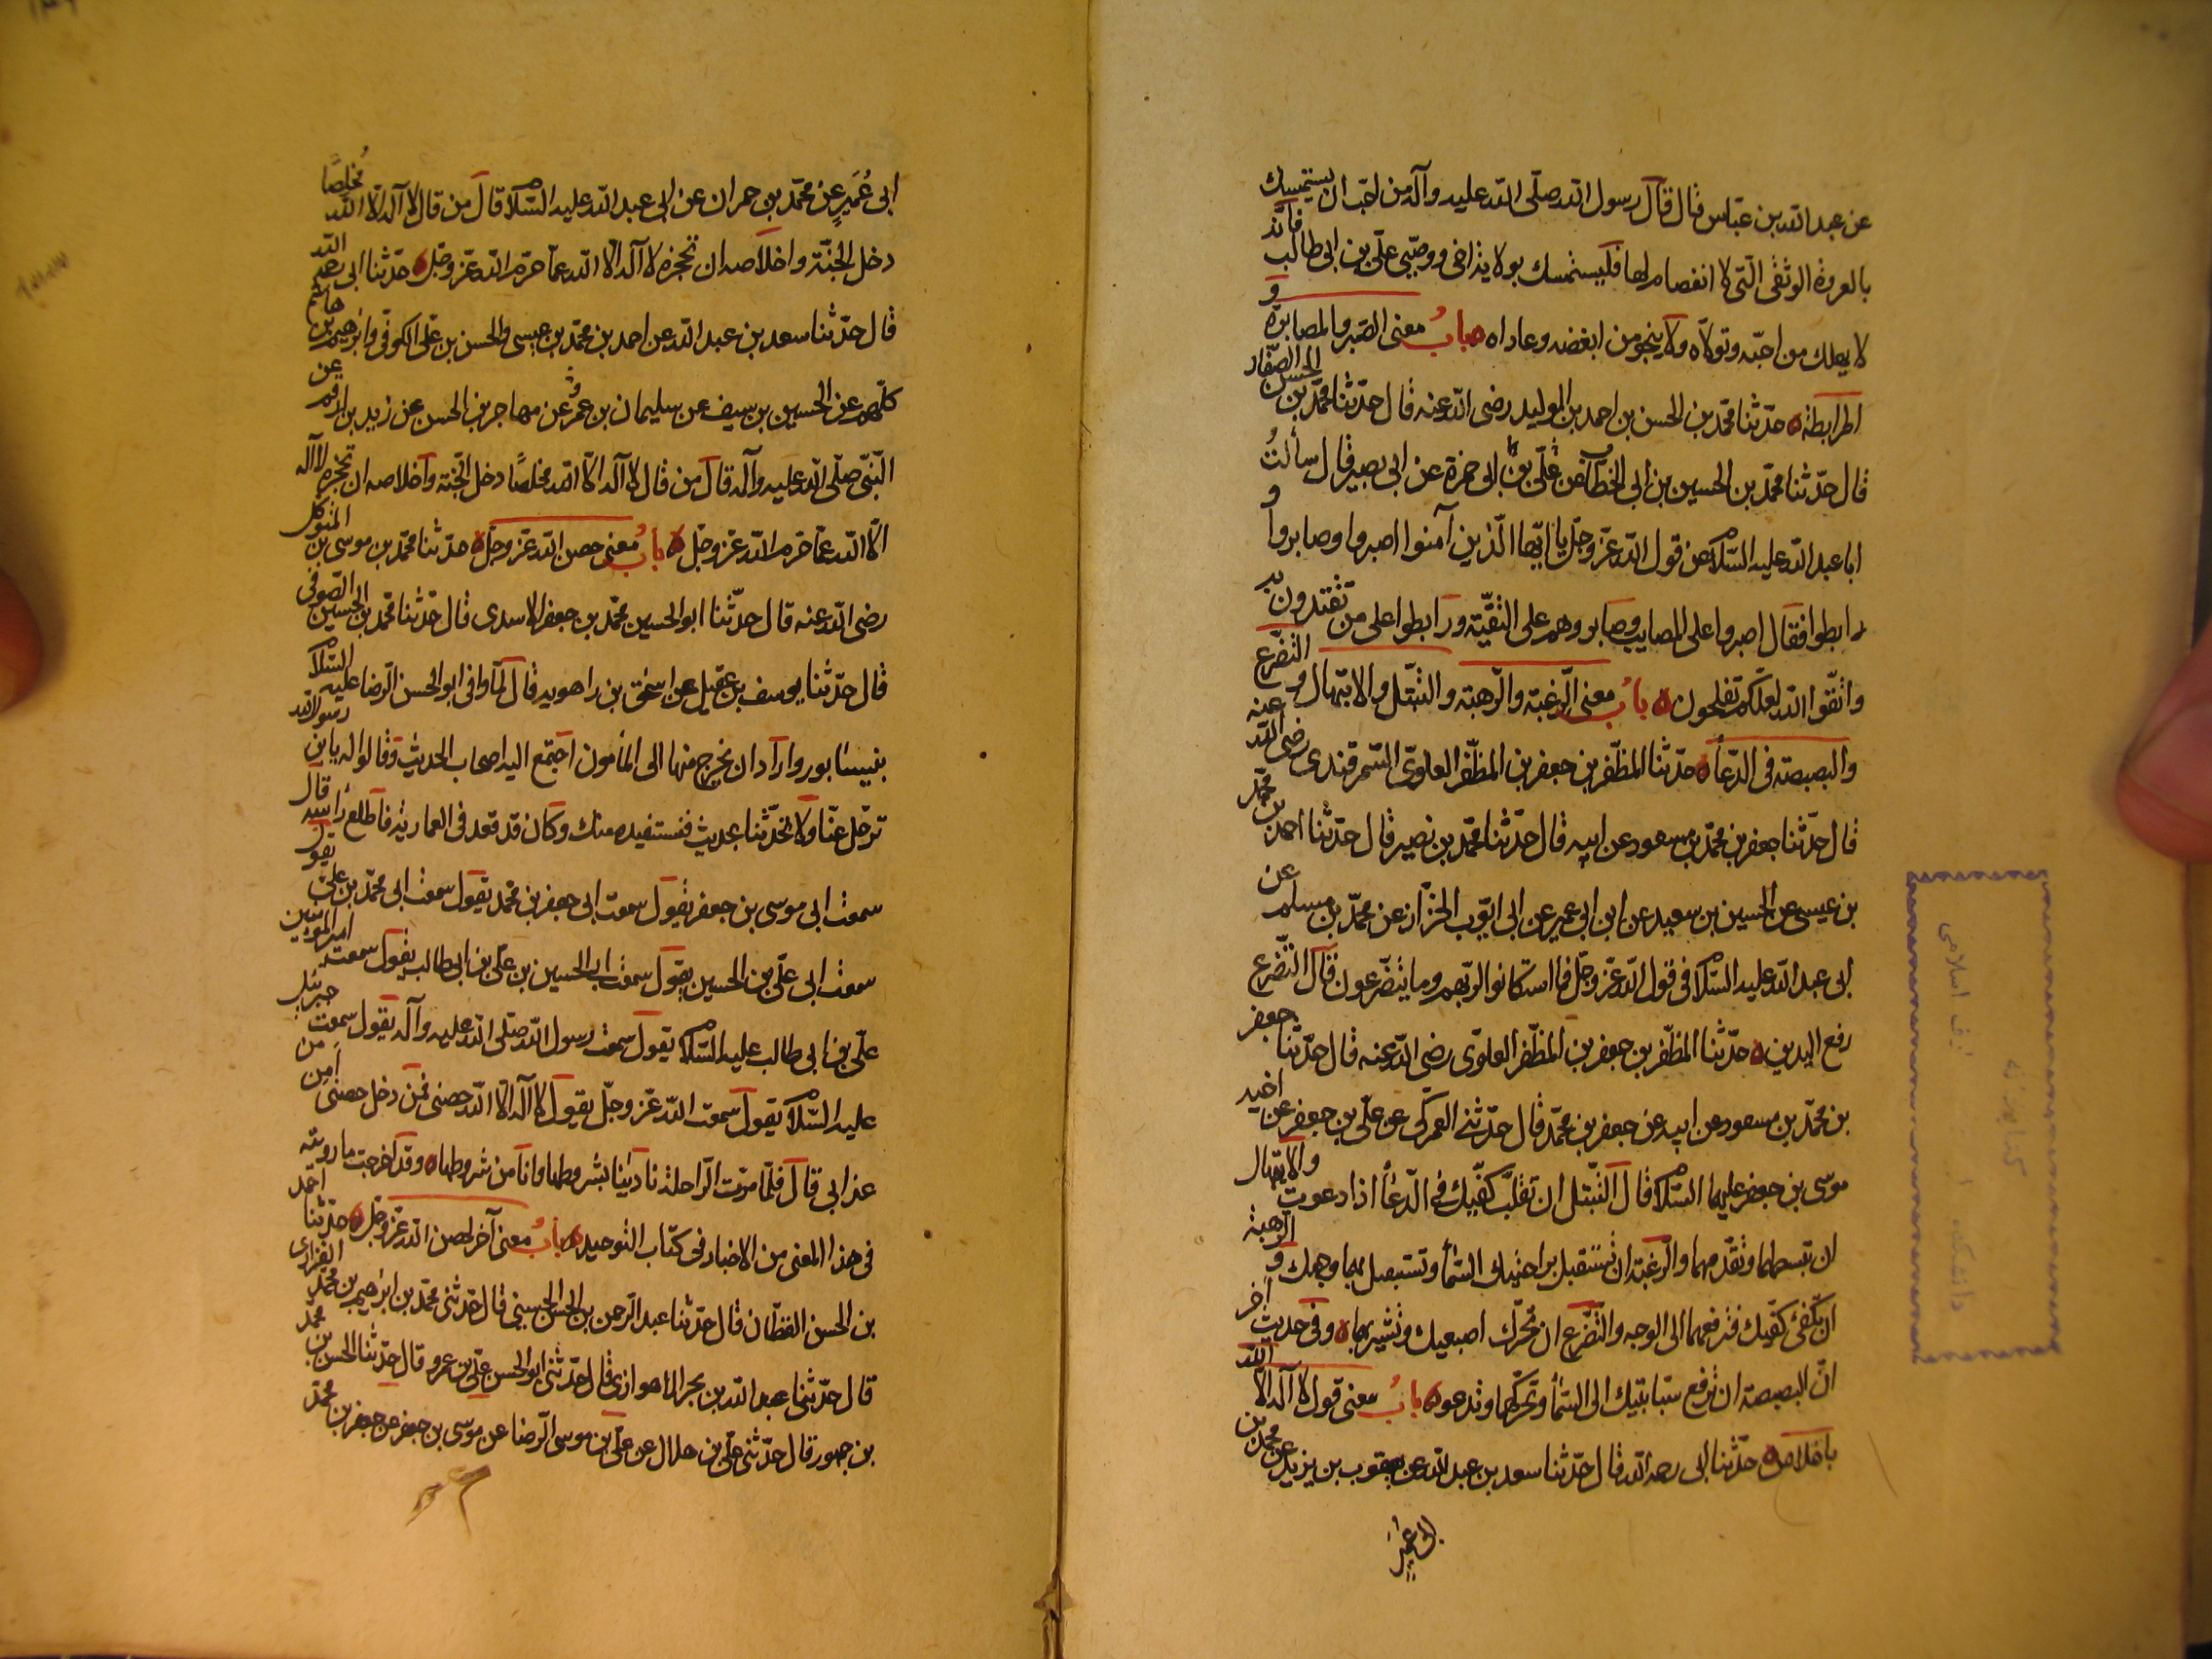 عن عبد الله بن عباس قال قال رسول الله صلى الله عليه وآله من احب ان يستمسك
بالعروة الوثقى التي لا انفصام لها فليستمسك بولاية اخي ووصيي علي بن ابي طالب فانه
لا يهلك من احبه وتولاه ولا ينجو من ابغضه وعاداه باب معنى الصبر والمصابرة و
المرابطة حدثنا محمد بن الحسن بن احمد بن الوليد رضى الله عنه قال حدثنا محمد بن الحسن الصفار
قال حدثنا محمد بن الحسين بن ابي الخطاب عن علي بن ابي حمزة عن ابي بصير قال سألت
ابا عبد الله عليه السلام عن قول الله عز وجل يا ايها الذين آمنوا اصبروا وصابروا و
رابطوا فقال اصبروا على المصايب وصابروهم على التقية ورابطوا على من تقتدون به
واتقوا الله لعلكم تفلحون باب معنى الرغبة والرهبة والتبتل والابتهال والتضرع
والبصبصة في الدعاء حدثنا المظفر بن جعفر بن المظفر العلوي السمرقندى رضى الله عنه
قال حدثنا جعفر بن محمد بن مسعود عن ابيه قال حدثنا محمد بن نصير قال حدثنا احمد بن محمد
بن عيسى عن الحسين بن سعيد عن ابن ابي عمير عن ابى ايوب الخزاز عن محمد بن مسلم عن
ابى عبد الله عليه السلام في قول الله عز وجل فما استكانوا لربهم وما يتضرعون قال التضرع
رفع اليدين حدثنا المظفر بن جعفر بن المظفر العلوى رضى الله عنه قال حدثنا جعفر
بن محمد بن مسعود عن ابيه عن جعفر بن محمد قال حدثني العمركى عن علي بن جعفر عن اخيه
موسى بن جعفر عليهما السلام قال التبتل ان تقلب كفيك في الدعاء اذا دعوت والابتهال
ان تبسطهما وتقدمهما والرغبة ان تستقبل براحتيك السماء وتستقبل بهما وجهك والرهبة
ان تكفئ كفيك فترفعهما الى الوجه والتضرع ان تحرك اصبعيك وتشير بهما وفى حديث آخر
ان البصبصة ان ترفع سبابتيك الى السماء وتحركهما وتدعو باب معنى قول لا اله الا الله
باخلاص حدثنا ابى رحمه الله قال حدثنا سعد بن عبد الله عن يعقوب بن يزيد عن محمد بن
ابى عمير
ابى عمير عن محمد بن حمران عن ابى عبد الله عليه السلام قال من قال لا اله الا الله مخلصا
دخل الجنة واخلاصه ان تحجزه لا اله الا الله عما حرم الله عز وجل حدثنا ابى رحمه الله
قال حدثنا سعد بن عبد الله عن احمد بن محمد بن عيسى والحسن بن على الكوفى وابرهيم بن هاشم
كلهم عن الحسين بن سيف عن سليمان بن عمرو عن مهاجر بن الحسن عن زيد بن ارقم عن
النبى صلى الله عليه وآله قال من قال لا اله الا الله مخلصا دخل الجنة واخلاصه ان تحجزه لا اله
الا الله عما حرم الله عز وجل باب معنى حصن الله عز وجل حدثنا محمد بن موسى بن المتوكل
رضى الله عنه قال حدثنا ابو الحسين محمد بن جعفر الاسدى قال حدثنا محمد بن الحسين الصوفى
قال حدثنا يوسف بن عقيل عن اسحق بن راهويه قال لما وافى ابو الحسن الرضا عليه السلام
بنيسابور واراد ان يخرج منها الى المأمون اجتمع اليه اصحاب الحديث وقالوا له يا بن رسول الله
ترحل عنا ولا تحدثنا بحديث فنستفيده منك وكان قد قعد فى العمارية فاطلع رأسه قال
سمعت ابى موسى بن جعفر يقول سمعت ابى جعفر بن محمد يقول سمعت ابى محمد بن على يقول
سمعت ابى على بن الحسين يقول سمعت ابى الحسين بن على بن ابى طالب يقول سمعت امير المؤمنين
على بن ابى طالب عليه السلام يقول سمعت رسول الله صلى الله عليه وآله يقول سمعت جبرئيل
عليه السلام يقول سمعت الله عز وجل يقول لا اله الا الله حصنى فمن دخل حصنى امن من
عذابى قال فلما مرت الراحلة نادينا بشروطها وانا من شروطها وقد اخرجت ما رويته
فى هذا المعنى من الاخبار فى كتاب التوحيد باب معنى آخر لحصن الله عز وجل حدثنا احمد
بن الحسن القطان قال حدثنا عبد الرحمن بن الحسن الحسينى قال حدثنى محمد بن ابرهيم بن محمد الفزارى
قال حدثنى عبد الله بن بحر الاهوازى قال حدثنى ابو الحسن على بن عمرو قال حدثنا الحسن بن محمد
بن جمهور قال حدثنى على بن هلال عن على بن موسى الرضا عن موسى بن جعفر عن جعفر بن محمد